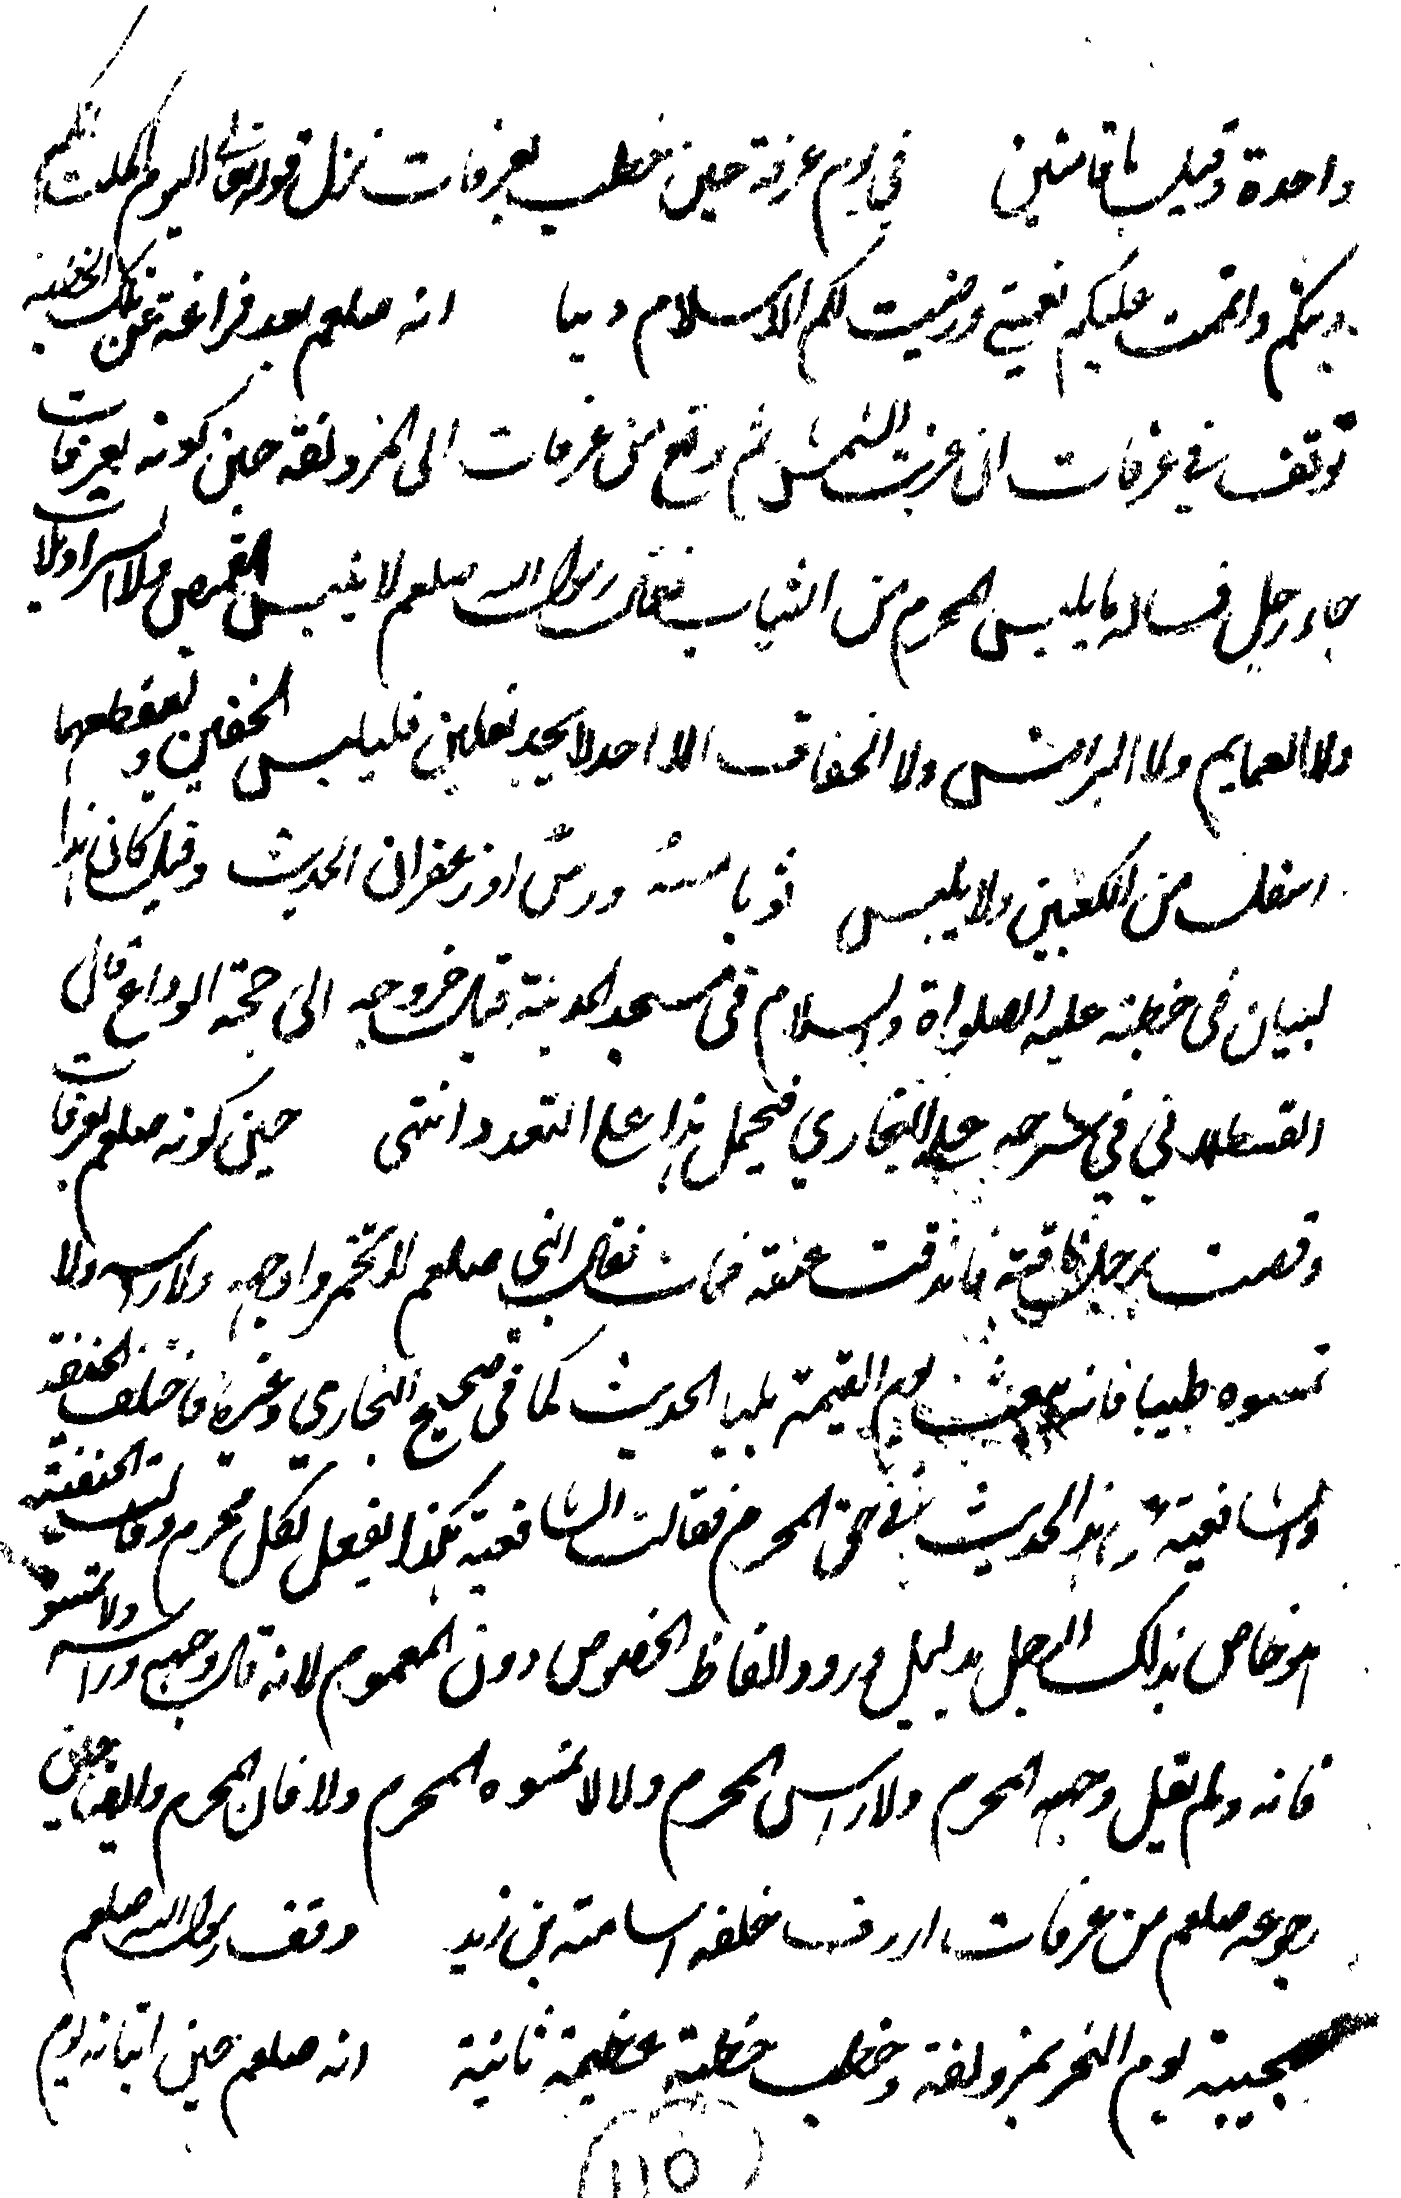 واحدة وقيل باقامتين في يوم عرفة حين خطب بعرفات نزل قوله تعالى اليوم اكملت لكم
دينكم واتممت عليكم نعمتي ورضيت لكم الاسلام دينا انه صلعم بعد فراغة عن تلك الخطبة
توقف في عرفات الى غربت الشمس ثم دفع من عرفات الى المزدلفة حين كونه بعرفات
جاء رجل فساله ما يلبس المحرم من الثياب فقال رسول الله صلعم لا يلبس القميص ولا السراويلات
ولا العمايم ولا البرانس ولا الخفاف الا احد لا يجد نعلين فليلبس الخفين وليقطعهما
اسفل من الكعبين ولا يلبس ثوبا مسه ورس او زعفران الحديث وقيل كان هذا
لبيان في خطبته عليه الصلواة والسلام في مسجد المدينة قبل خروجه الى حجة الوداع قال
القسطلاني في شرحه على البخاري فيحمل هذا على التعدد انتهى حين كونه صلعم بعرفات
وقصت برجل ناقته فاندقت عنقه فمات فقال النبي صلعم لا تخمروا وجهه ولا راسه ولا
تمسوه طيبا فانه يبعث يوم القيمة يلبي الحديث كما في صحيح البخاري وغيره فاختلف الحنفية
والشافعية هذا الحديث في حق المحرم فقالت الشافعية هكذا يفعل لكل محرم وقالت الحنفية
هو خاص بذلك الرجل بدليل ورود الفاظ الخصوص دون العموم لانه قال وجهه وراسه ولا تمسوه
فانه ولم يقل وجه المحرم ولا راس المحرم ولا لا تمسوه المحرم ولا فان المحرم وايضا حين
رجوعه صلعم من عرفات اردف خلفه اسامة بن زيد وقف رسول الله صلعم
صبيحة يوم النحر بمزدلفة وخطب خطبة عظيمة ثانية انه صلعم حين اتيانه يوم
١١٥